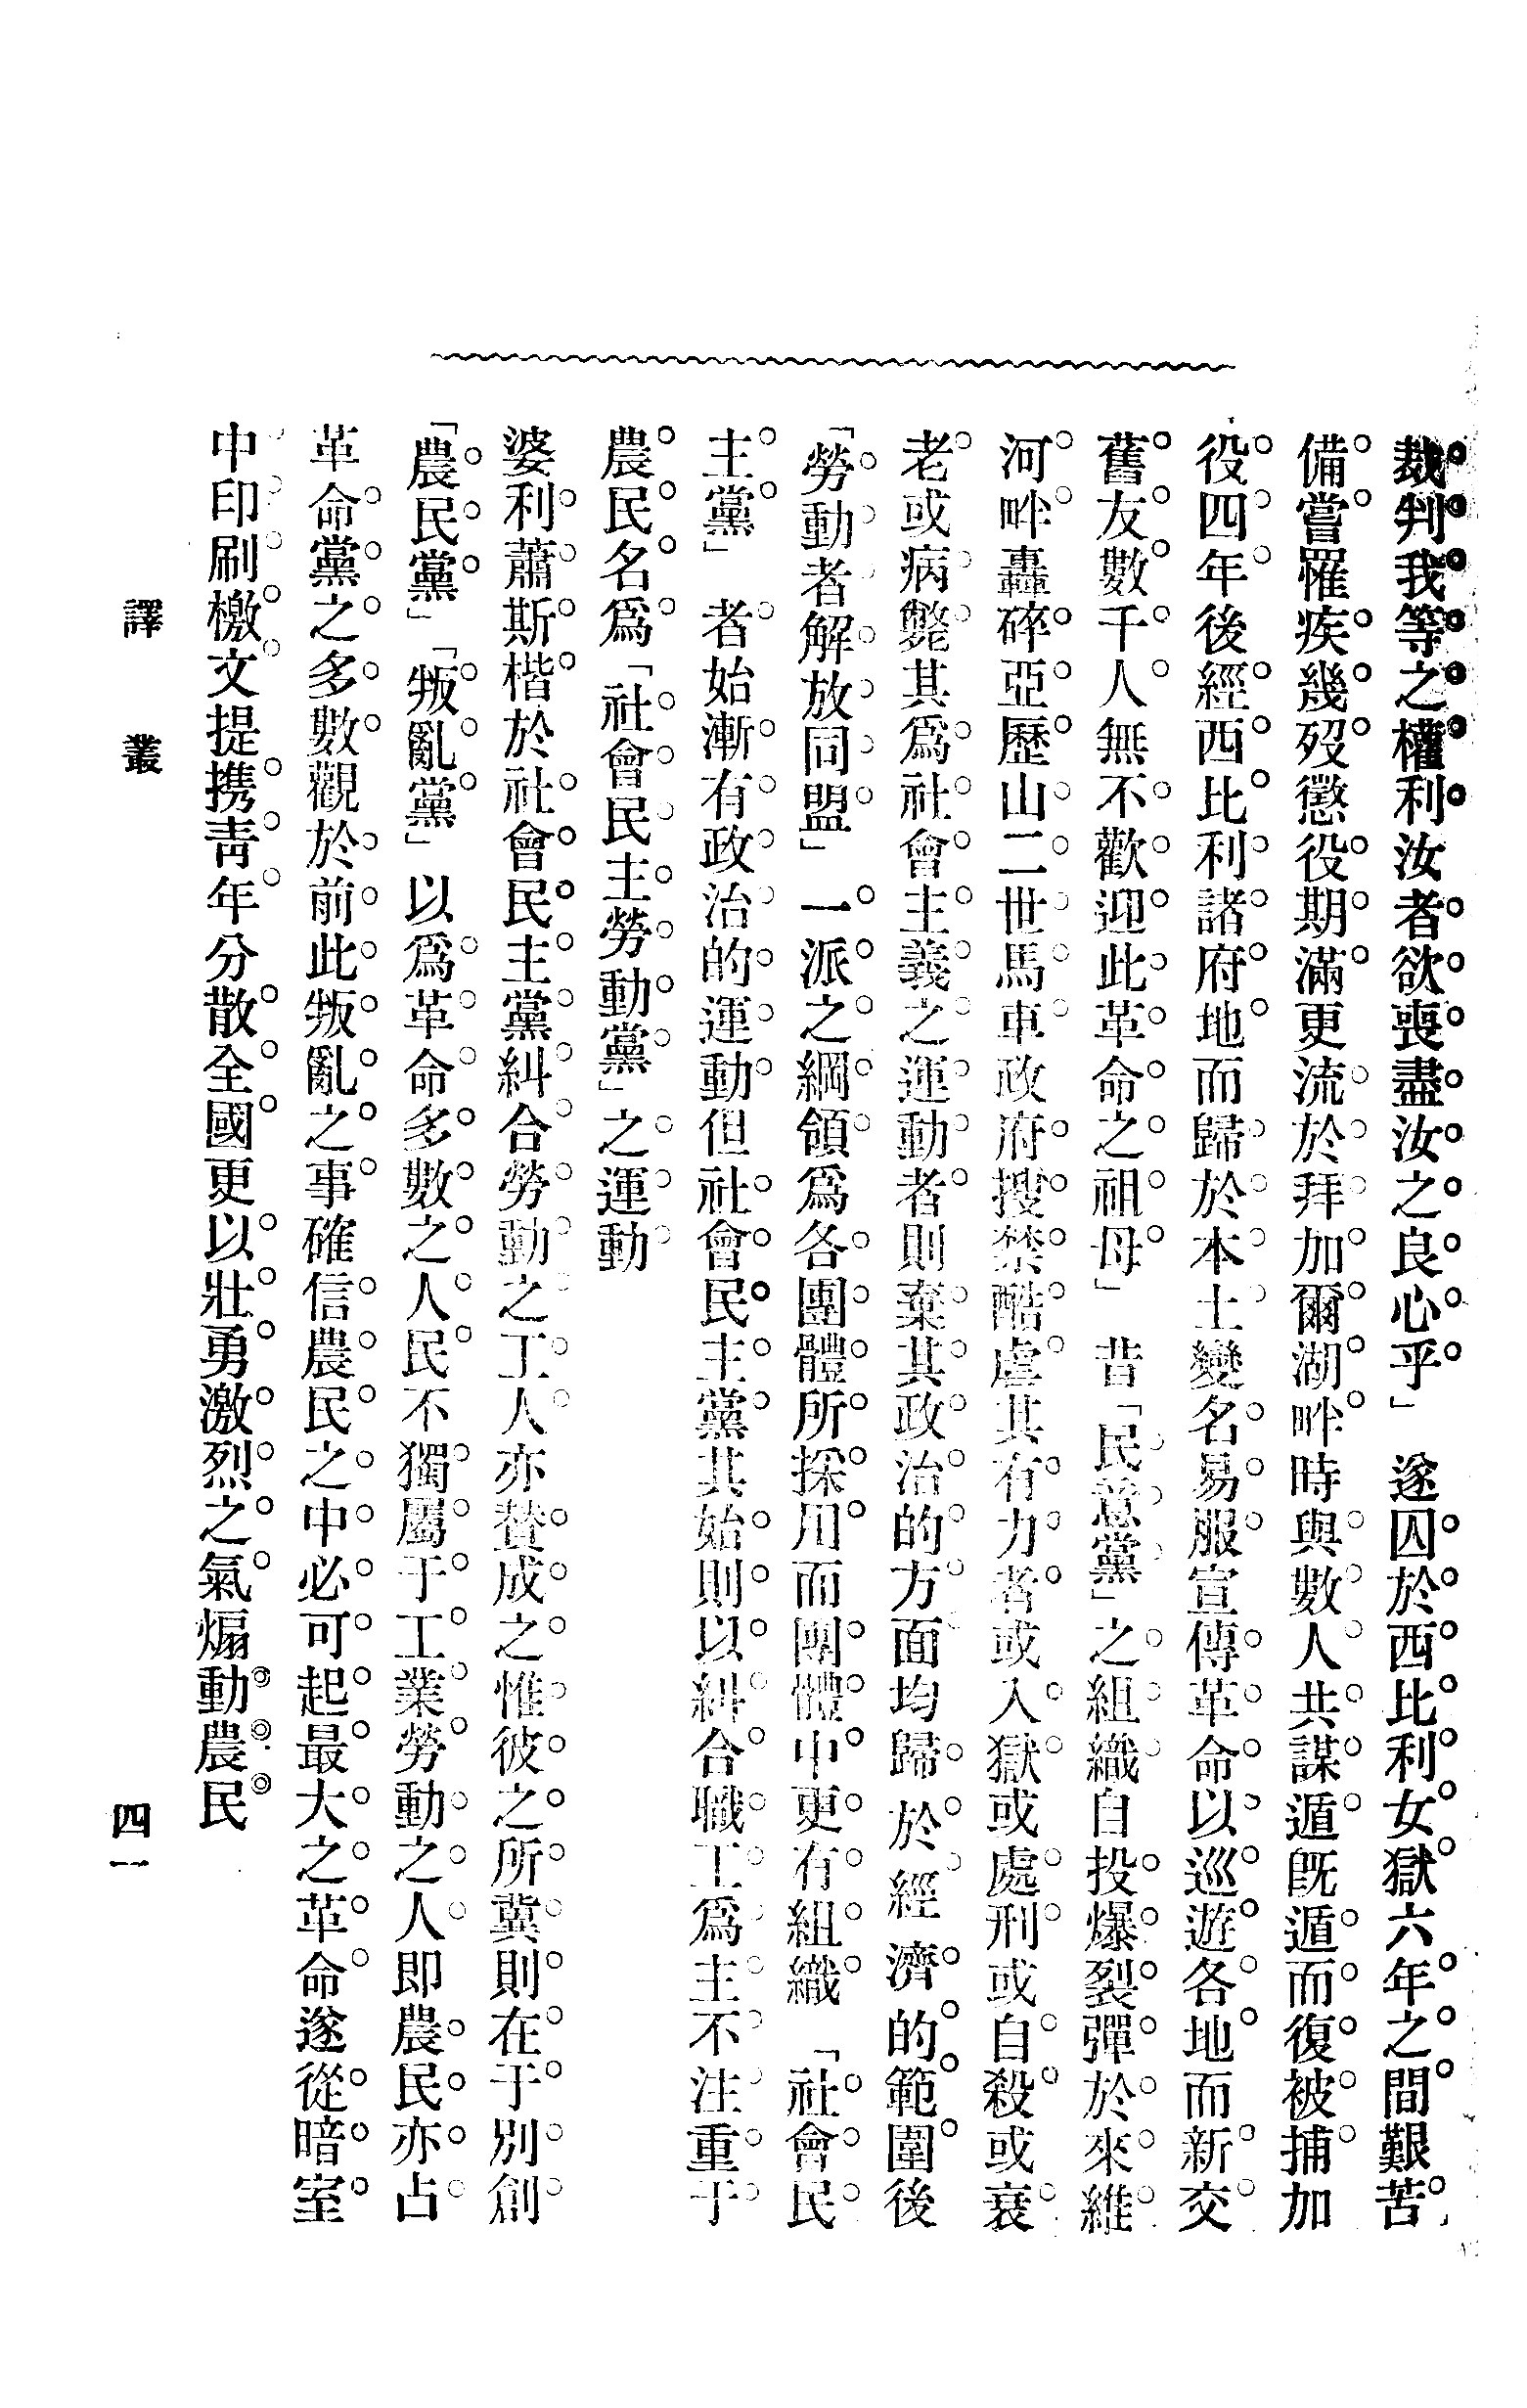 裁判我等之權利汝者欲喪盡汝之良心乎」遂囚於西比利女獄六年之間艱苦
備嘗罹疾幾歿懲役期滿更流於拜加爾湖畔時與數人共謀遁旣遁而復被捕加
役四年後經西比利諸府地而歸於本土變名易服宣傳革命以巡遊各地而新交
舊友數千人無不歡迎此革命之祖母」昔「民意黨」之組織自投爆裂彈於來維
河畔轟碎亞歷山二世馬車政府搜禁酷虐其有力者或入獄或處刑或自殺或衰
老或病斃其爲社會主義之運動者則棄其政治的方面均歸於經濟的範圍後
「勞動者解放同盟」一派之綱領爲各團體所採用而團體中更有組織「社會民
主黨」者始漸有政治的運動但社會民主黨其始則以糾合職工爲主不注重于
農民名爲「社會民主勞動黨」之運動
婆利蕭斯楷於社會民主黨糾合勞動之工人亦贊成之惟彼之所冀則在于別創
「農民黨」「叛亂黨」以爲革命多數之人民不獨屬于工業勞動之人即農民亦占
革命黨之多數觀於前此叛亂之事確信農民之中必可起最大之革命遂從暗室
中印刷檄文提携靑年分散全國更以壯勇激烈之氣煽動農民
譯叢
四一